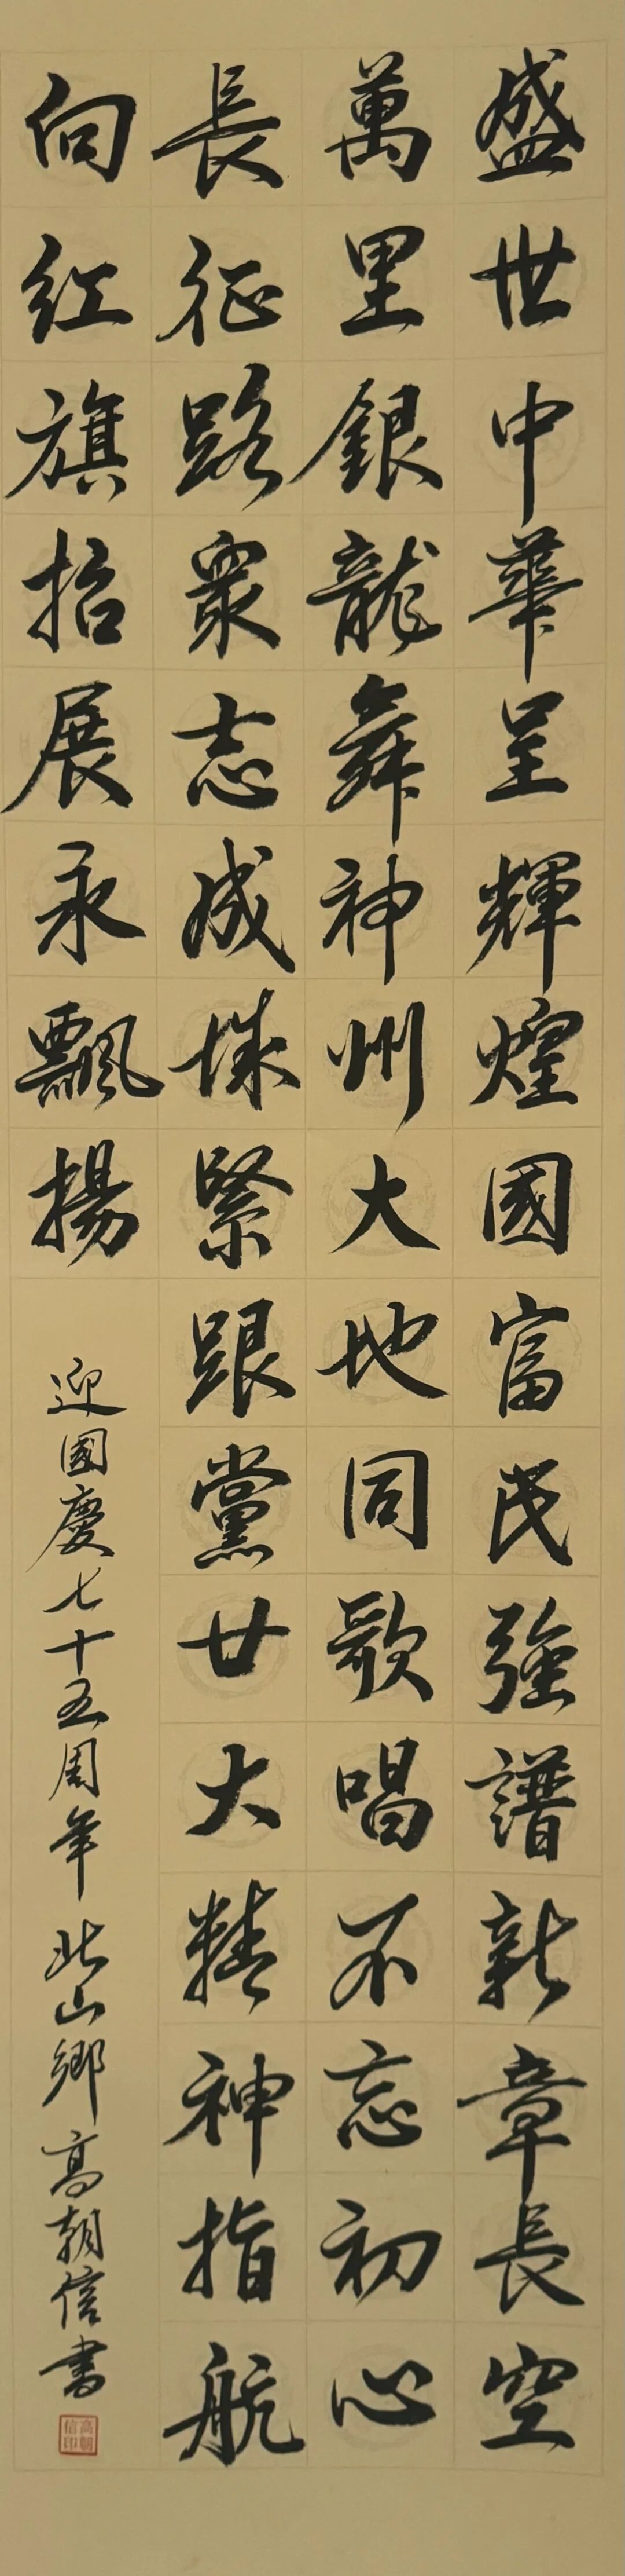 盛世中華呈輝煌國富民強譜新章長空
萬里銀龍舞神州大地同歌唱不忘初心
長征路眾志成城緊跟黨廿大精神指航
向红旗招展永飄揚
迎國慶七十五周年 北山鄉高朝信書
高朝信印